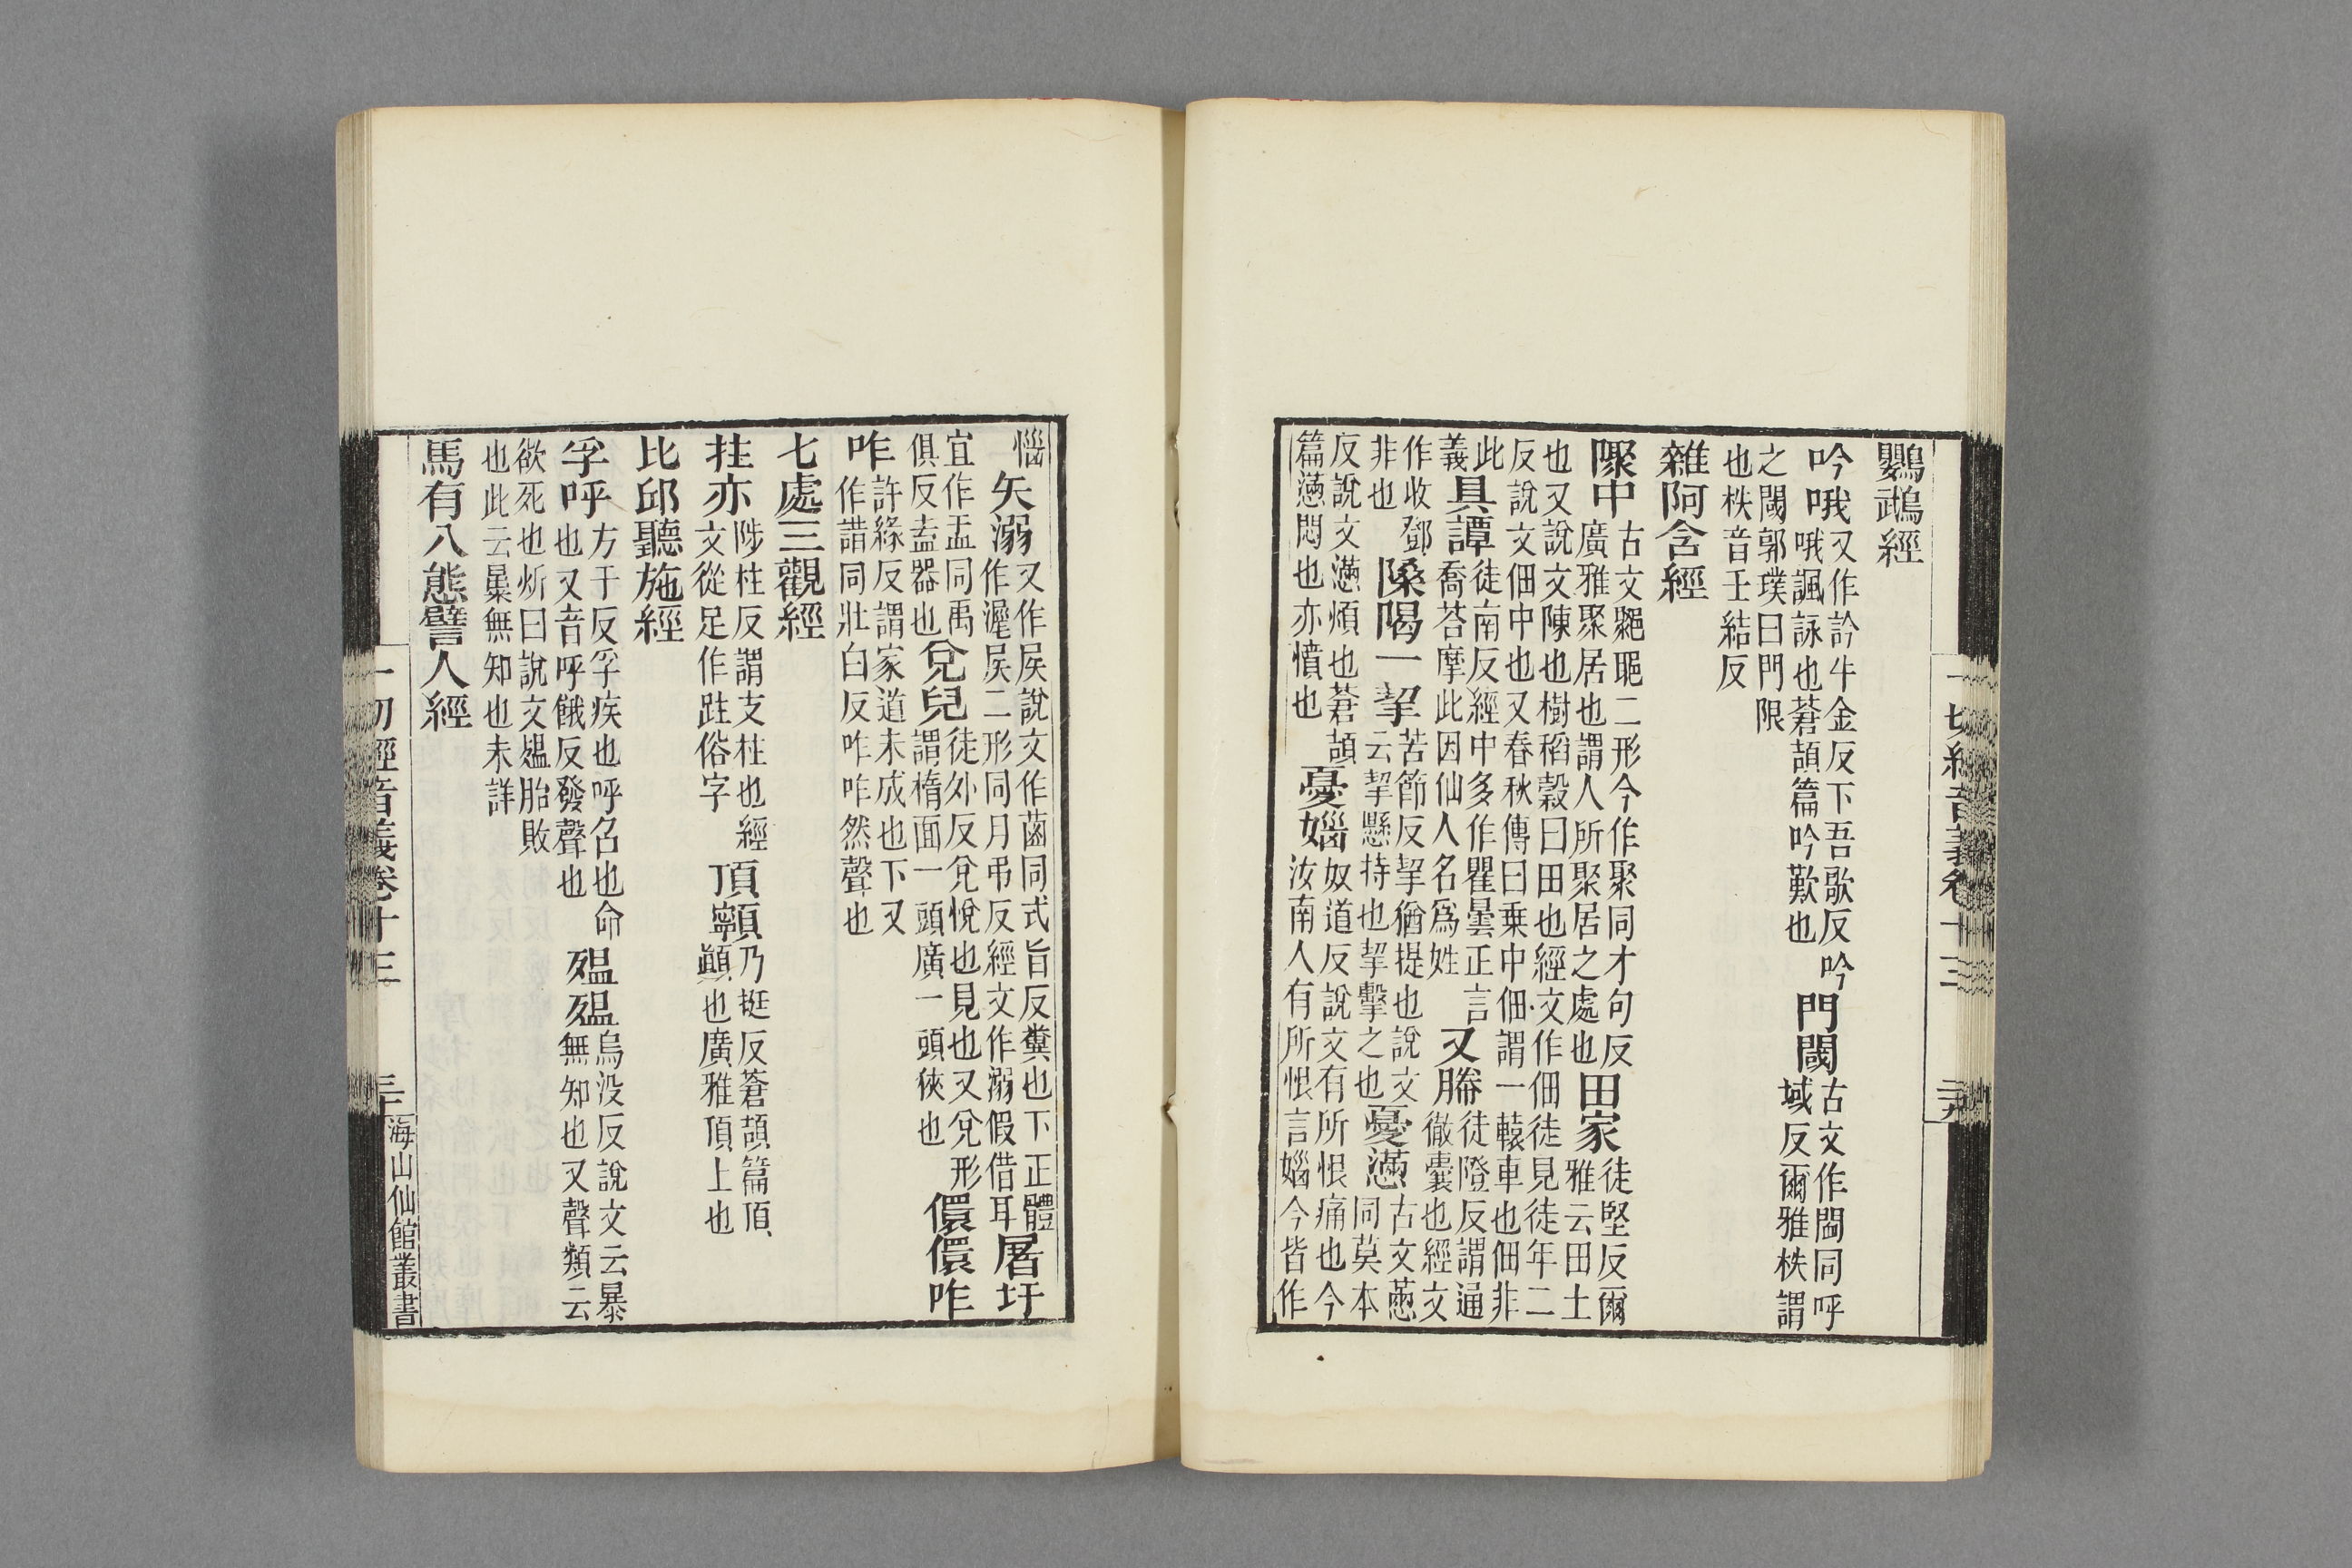 鸚鵡經
吟哦又作訡牛金反下吾歌反吟哦諷詠也蒼頡篇吟歎也門閾古文作閾同呼域反爾雅柣謂
之閾郭璞曰門限也柣音壬結反
雜阿含經
中古文二形今作聚同才句反廣雅聚居也謂人所聚居之處也田家徒堅反爾雅云田土
也又說文陳也樹稻穀曰田也經文作佃徒見徒年二反說文佃中也又春秋傳曰乗中佃謂一轅車也佃非
此義具譚徒南反經中多作瞿曇正言喬荅摩此因仙人名爲姓又幐徒隥反謂通徹囊也經文
作收鄧非也一挈苦節反挈猶提也說文云挈懸持也挈擊之也憂懣古文同莫本
反說文懣煩也蒼頡篇懣悶也亦憤也憂㛴奴道反說文有所恨痛也今汝南人有所恨言㛴今皆作
一切經音義卷十三
惱矢溺又作屎說文作𦳊同式旨反糞也下正體作屎二形同月弔反經文作溺假借耳屠圩
宜作盂同禹俱反盍器也兌兒徒外反兌悅也見也又兌形謂楕面一頭廣一頭狹也儇儇咋
咋許緣反謂家道未成也下又作諎同壯白反咋咋然聲也
七處三觀經
拄亦陟柱反謂支柱也經文從足作跓俗字頂𩕳乃挺反蒼頡篇頂顚也廣雅頂上也
比邱聽施經
孚呼方于反孚疾也呼召也命也又音呼餓反發聲也殟殟烏没反說文云暴無知也又聲類云
欲死也炘曰說文殟胎敗也此云暴無知也未詳
馬有八態譬人經
一切經音義卷十三
三十
海山仙館叢書